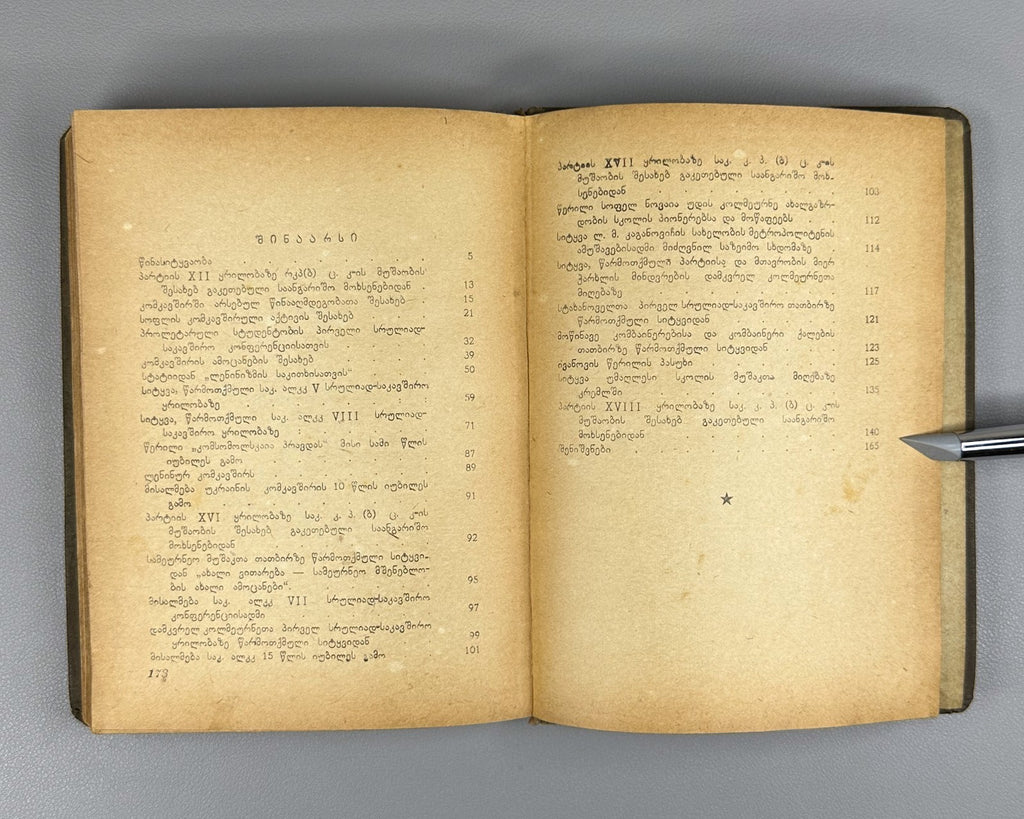 შინაარსი
წინასიტყვაობა . . . . . . . . 5
პარტიის XII ყრილობაზე რკპ(ბ) ც. კ-ის მუშაობის
შესახებ გაკეთებული საანგარიშო მოხსენებიდან . 13
კომკავშირში არსებულ წინააღმდეგობათა შესახებ . 15
სოფლის კომკავშირული აქტივის შესახებ . . . 21
პროლეტარული სტუდენტობის პირველი სრულიად-
საკავშირო კონფერენციისათვის . . . . 32
კომკავშირის ამოცანების შესახებ . . . . 39
სტატიიდან „ლენინიზმის საკითხისათვის“ . . . 50
სიტყვა, წარმოთქმული საკ. ალკკ V სრულიად-საკავშირო
ყრილობაზე . . . . . . . 59
სიტყვა, წარმოთქმული საკ. ალკკ VIII სრულიად-
საკავშირო ყრილობაზე . . . . . 71
წერილი „კომსომოლსკაია პრავდას“ მისი სამი წლის
იუბილეს გამო . . . . . . 87
ლენინურ კომკავშირს . . . . . . 89
მისალმება უკრაინის კომკავშირის 10 წლის იუბილეს
გამო . . . . . . . . 91
პარტიის XVI ყრილობაზე საკ. კ. პ. (ბ) ც. კ-ის
მუშაობის შესახებ გაკეთებული საანგარიშო
მოხსენებიდან . . . . . . . 92
სამეურნეო მუშაკთა თათბირზე წარმოთქმული სიტყვი-
დან „ახალი ვითარება — სამეურნეო მშენებლო-
ბის ახალი ამოცანები“. . . . . . 95
მისალმება საკ. ალკკ VII სრულიად-საკავშირო
კონფერენციისადმი . . . . . . 97
დამკვრელ კოლმეურნეთა პირველ სრულიად-საკავშირო
ყრილობაზე წარმოთქმული სიტყვიდან . . . 99
მისალმება საკ. ალკკ 15 წლის იუბილეს გამო . . 101
173
პარტიის XVII ყრილობაზე საკ. კ. პ. (ბ) ც. კ-ის
მუშაობის შესახებ გაკეთებული საანგარიშო მოხ-
სენებიდან . . . . . . . . 103
წერილი სოფელ ნოვაია უდის კოლმეურნე ახალგაზრ-
დობის სკოლის პიონერებსა და მოწაფეებს . . 112
სიტყვა ლ. მ. კაგანოვიჩის სახელობის მეტროპოლიტენის
ამუშავებისადმი მიძღვნილ საზეიმო სხდომაზე . 114
სიტყვა, წარმოთქმული პარტიისა და მთავრობის მიერ
ჭარხლის მინდვრების დამკვრელ კოლმეურნეთა
მიღებაზე . . . . . . . . 117
სტახანოველთა პირველ სრულიად-საკავშირო თათბირზე
წარმოთქმული სიტყვიდან . . . . . 121
მოწინავე კომბაინერებისა და კომბაინერი ქალების
თათბირზე წარმოთქმული სიტყვიდან . . . 123
ივანოვის წერილის პასუხი . . . . . 125
სიტყვა უმაღლესი სკოლის მუშაკთა მიღებაზე
კრემლში . . . . . . . . 135
პარტიის XVIII ყრილობაზე საკ. კ. პ. (ბ) ც. კ-ის
მუშაობის შესახებ გაკეთებული საანგარიშო
მოხსენებიდან . . . . . . . 140
შენიშვნები . . . . . . . . 165